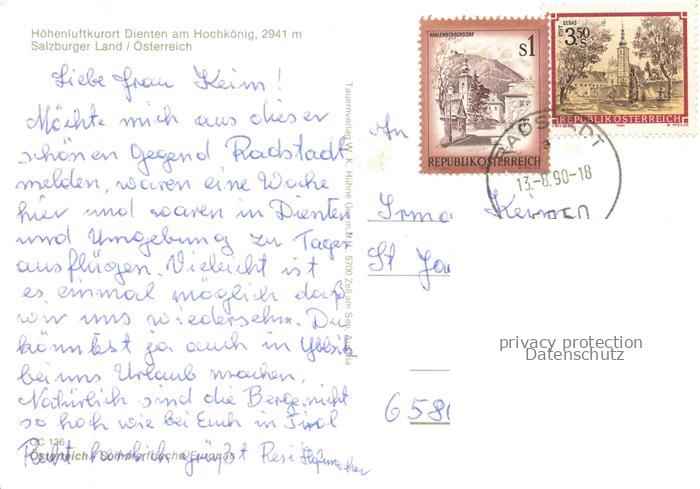 Höhenluftkurort Dienten am Hochkönig, 2941 m
Salzburger Land / Österreich
Liebe Frau Keim!
Möchte mich aus dieser
schönen Gegend Radstadt
melden, waren eine Woche
hier und waren in Dienten
und Umgebung zu Tages
ausflügen. Vieleicht ist
es einmal möglich daß
wir uns wiedersehn. Du
könntest ja auch in Ybbsitz
bei uns Urlaub machen.
Natürlich sind die Berge nicht
so hoch wie bei Euch in Tirol
Recht herzlich grüßt Resi
OC 136
Österreich / Sommerfrische Europas
Tauernverlag W. K. Hühne Ges.m.b.H. 5700 Zell am See, Austria
KAHLENBERGERDORF
S1
REPUBLIK ÖSTERREICH
GERAS
3.50
S
REPUBLIK ÖSTERREICH
RADSTADT
a
13.-8.90-18
5550
An
Irma Keim
St Ja
658
privacy protection
Datenschutz